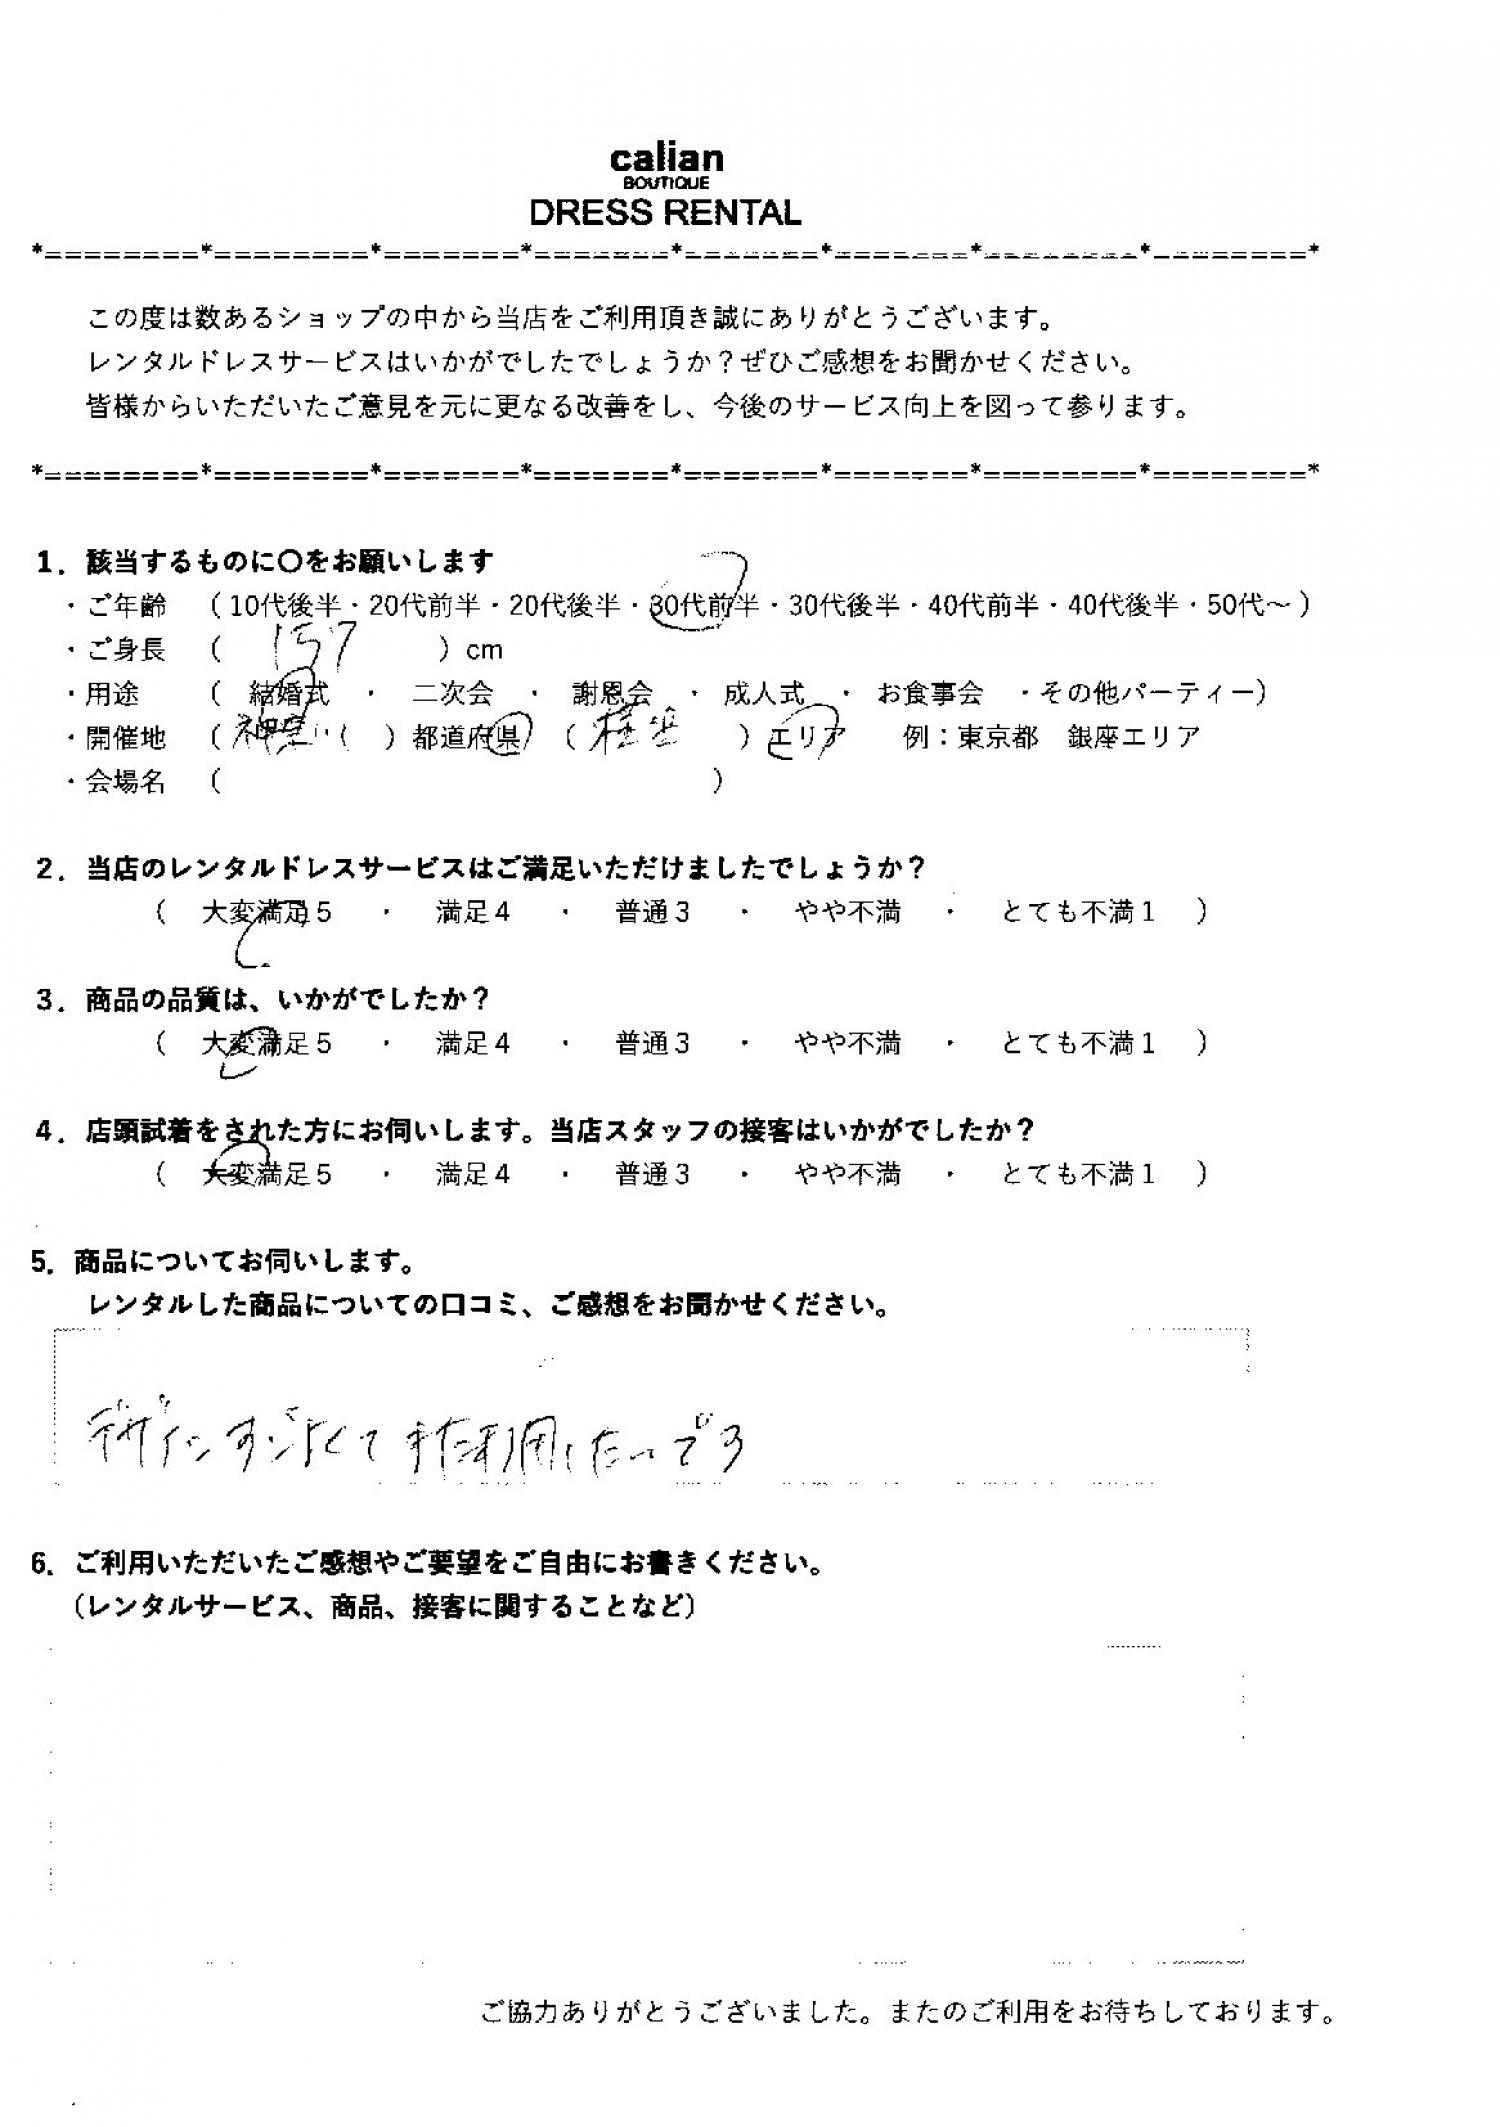 calian
BOUTIQUE
DRESS RENTAL
*========*========*=======*=======*=======*=======*========*========*
この度は数あるショップの中から当店をご利用頂き誠にありがとうございます。
レンタルドレスサービスはいかがでしたでしょうか？ぜひご感想をお聞かせください。
皆様からいただいたご意見を元に更なる改善をし、今後のサービス向上を図って参ります。
*========*========*=======*=======*=======*=======*========*========*
1．該当するものに〇をお願いします
・ご年齢 （10代後半・20代前半・20代後半・30代前半・30代後半・40代前半・40代後半・50代～）
・ご身長 （ 157 ）cm
・用途 （ 結婚式 ・ 二次会 ・ 謝恩会 ・ 成人式 ・ お食事会 ・その他パーティー）
・開催地 （ 神奈川 ）都道府県 （ ）エリア 例：東京都 銀座エリア
・会場名 （ ）
2．当店のレンタルドレスサービスはご満足いただけましたでしょうか？
（ 大変満足5 ・ 満足4 ・ 普通3 ・ やや不満 ・ とても不満1 ）
3．商品の品質は、いかがでしたか？
（ 大変満足5 ・ 満足4 ・ 普通3 ・ やや不満 ・ とても不満1 ）
4．店頭試着をされた方にお伺いします。当店スタッフの接客はいかがでしたか？
（ 大変満足5 ・ 満足4 ・ 普通3 ・ やや不満 ・ とても不満1 ）
5．商品についてお伺いします。
レンタルした商品についての口コミ、ご感想をお聞かせください。
デザインすごくよくてまた利用したいです
6．ご利用いただいたご感想やご要望をご自由にお書きください。
（レンタルサービス、商品、接客に関することなど）
ご協力ありがとうございました。またのご利用をお待ちしております。